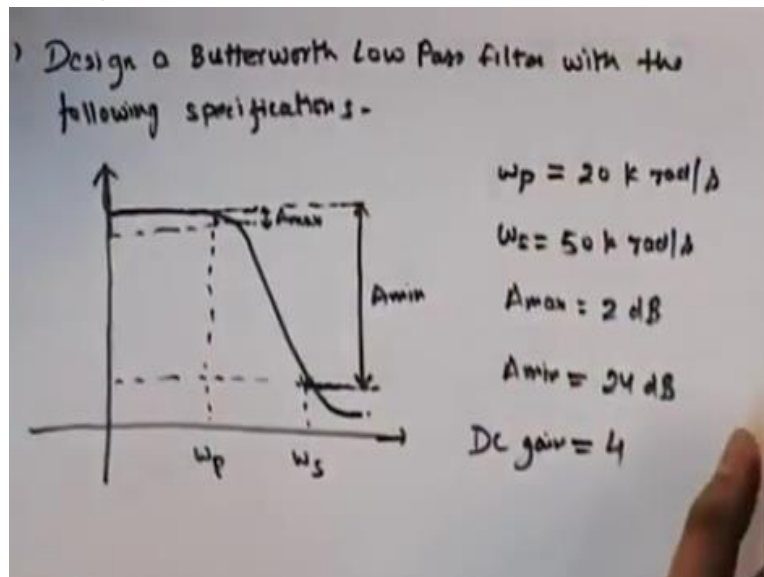 ) Design a Butterworth Low Pass filter with the
following specifications-
Amax
Amin
ωp ωs
ωp = 20 k rad/s
ωs = 50 k rad/s
Amax = 2 dB
Amin = 24 dB
DC gain = 4